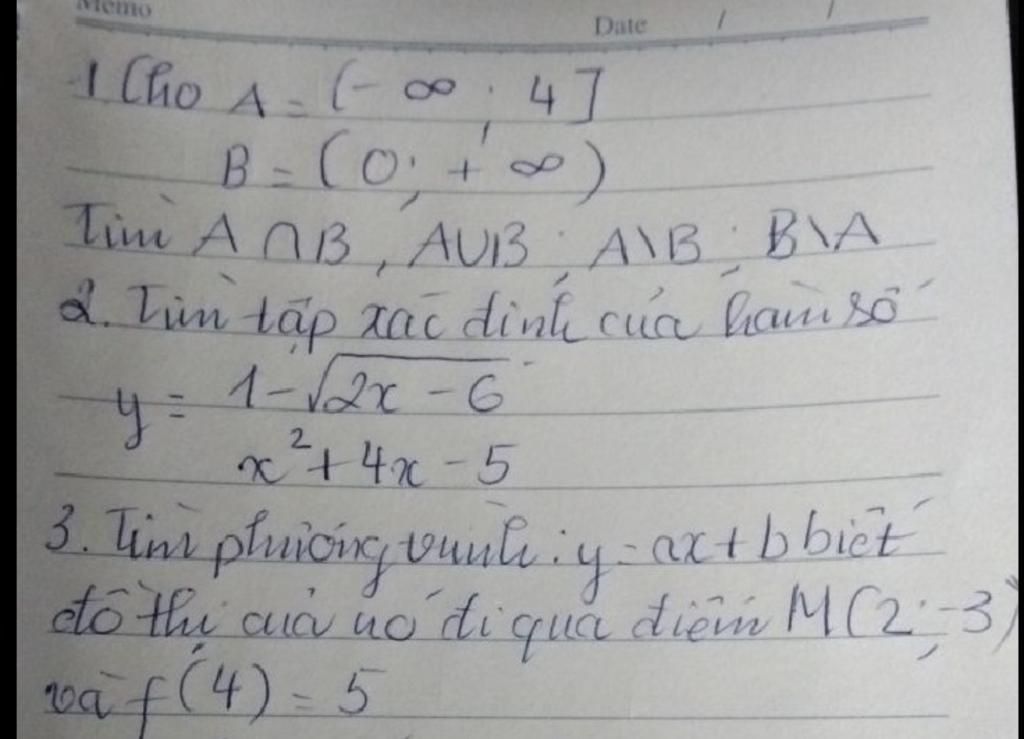 Memo Date / /
1 Cho A = (- ∞ ; 4]
B = (0; + ∞)
Tìm A ∩ B, A∪B; A\B; B\A
2. Tìm tập xác định của hàm số
y = 1-√2x - 6
x² + 4x - 5
3. Tìm phương trình: y = ax + b biết
đồ thị của nó đi qua điểm M(2; -3)
và f(4) = 5